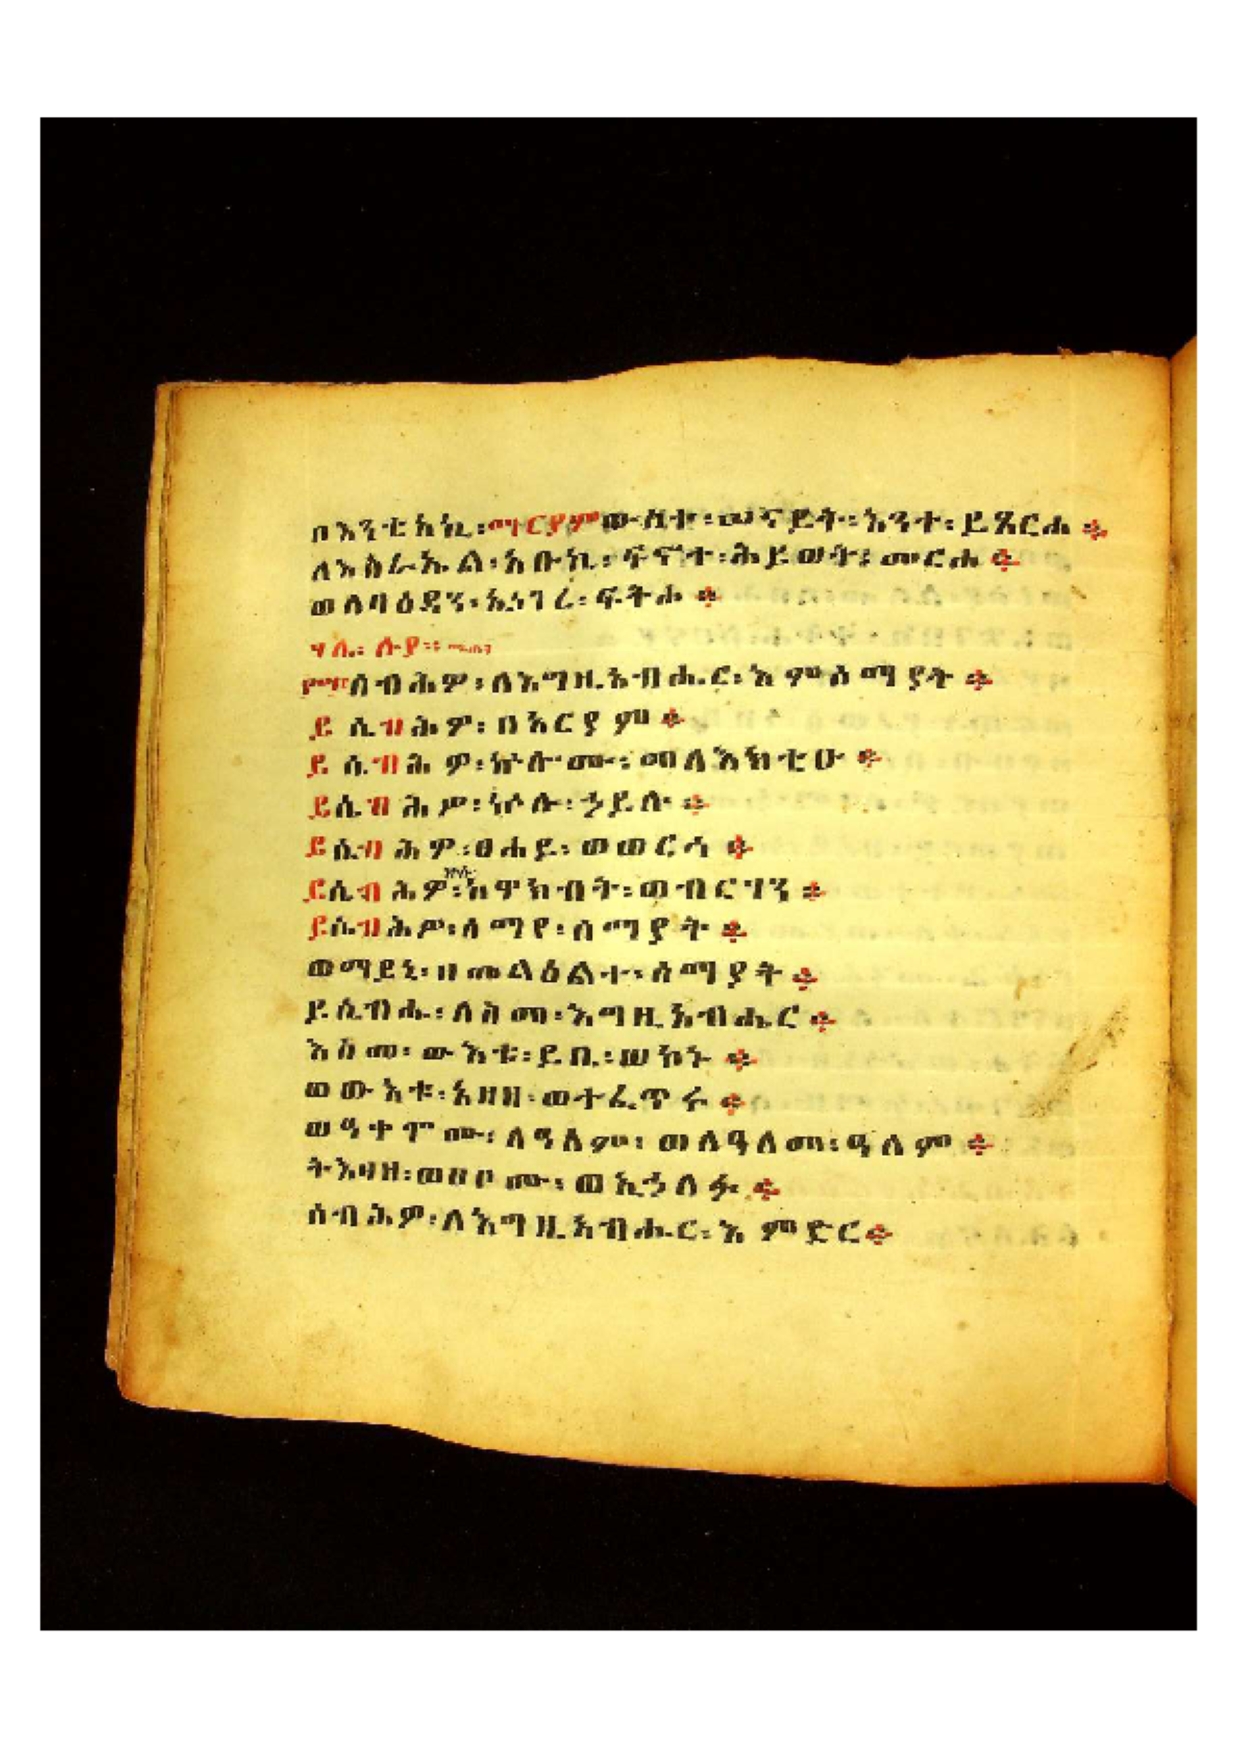 በእንቲአኪ፡ማርያምውስተ፡መናይት፡እንተ፡ይጼርሐ፨
ለእስራኤል፡አቡኪ፡ፍኖተ፡ሕይወት፡መርሐ፨
ወለባዕዳን፡አኅገረ፡ፍትሐ፨
ሃሌ፡ሉያ፡፡
፻፵፰ሰብሕዎ፡ለእግዚአብሔር፡እምሰማያት፨
ይሴብሕዎ፡በአርያም፨
ይሴብሕዎ፡ኵሎሙ፡መለእክቲሁ፨
ይሴብሕዎ፡ኵሉ፡ኃይሉ፨
ይሴብሕዎ፡ፀሐይ፡ወወርኅ፨
ይሴብሕዎ፡ኵሉ፡ከዋክብት፡ወብርሃን፨
ይሴብሕዎ፡ሰማየ፡ሰማያት፨
ወማይኒ፡ዘመልዕልተ፡ሰማያት፨
ይሴብሑ፡ለስመ፡እግዚአብሔር፨
እስመ፡ውእቱ፡ይቤ፡ወኮኑ፨
ወውእቱ፡አዘዘ፡ወተፈጥሩ፨
ወዓቀሞሙ፡ለዓለም፡ወለዓለመ፡ዓለም፨
ትእዛዘ፡ወሀቦሙ፡ወኢኃለፉ፨
ሰብሕዎ፡ለእግዚአብሔር፡እምድር፨